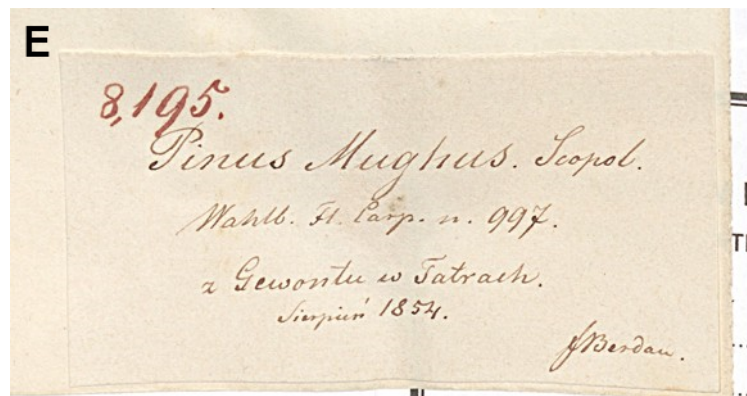 E
8,195.
Pinus Mughus. Scopol.
Wahlb. Fl. Carp. n. 997.
z Gewontu w Tatrach.
Sierpień 1854.
FBerdau.